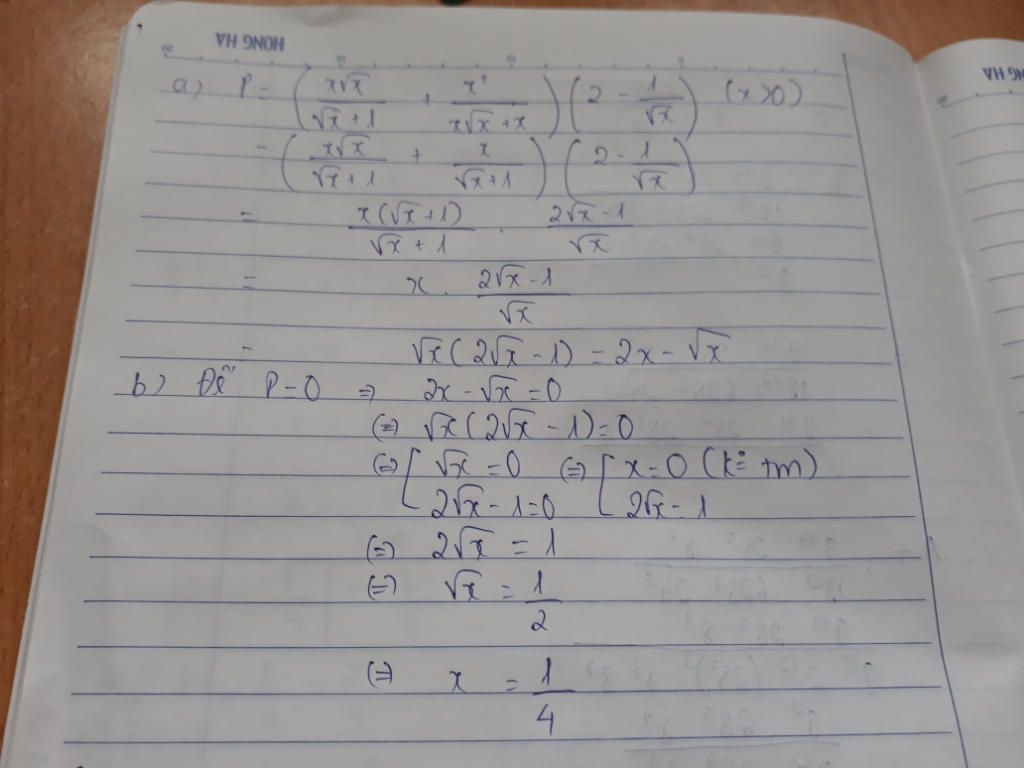 HONG HA
a) P = (x√x/(√x + 1) + x²/(x√x + x)) (2 - 1/√x) (x > 0)
= (x√x/(√x + 1) + x/(√x + 1)) (2 - 1/√x)
= x(√x + 1)/(√x + 1) . (2√x - 1)/√x
= x . (2√x - 1)/√x
= √x (2√x - 1) = 2x - √x
b) Để P = 0 ⇒ 2x - √x = 0
(=) √x (2√x - 1) = 0
(=) [ √x = 0 (=) [ x = 0 (k: +m)
2√x - 1 = 0 2√x - 1
(=) 2√x = 1
(=) √x = 1/2
(=) x = 1/4